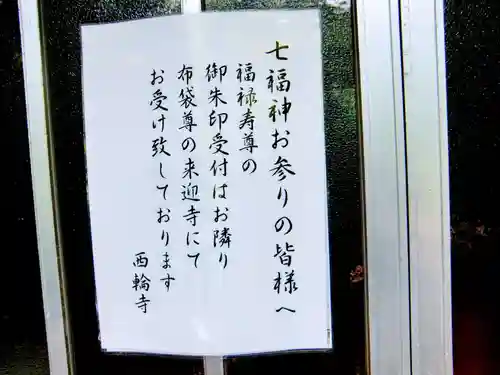 七福神お参りの皆様へ
福禄寿尊の
御朱印受付はお隣り
布袋尊の来迎寺にて
お受け致しております
西輪寺